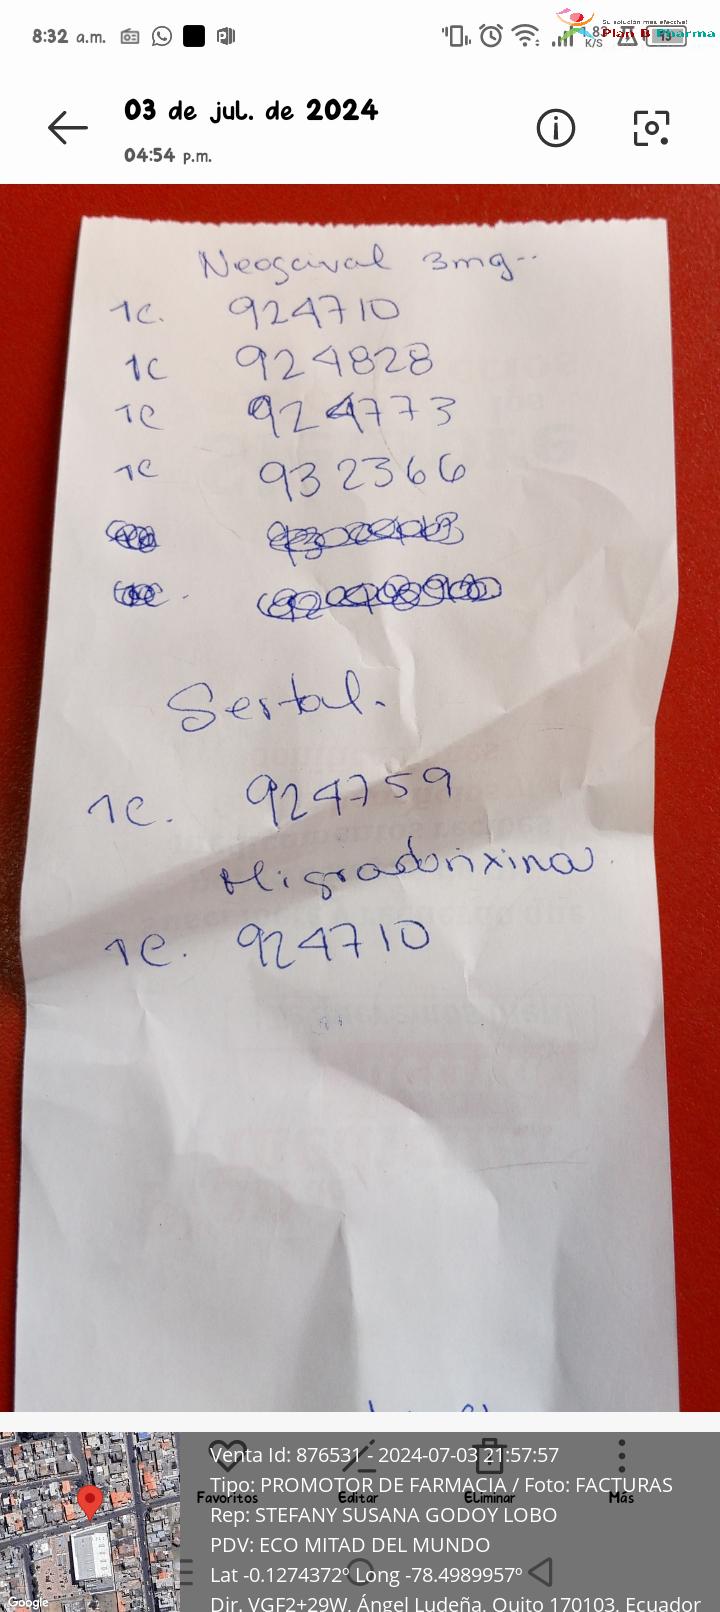 8:32 a.m.
83 K/S
13
Su solución más efectiva!
Plan B Pharma
03 de jul. de 2024
04:54 p.m.
Neogaival 3mg..
1c. 924710
1c 924828
1c 924773
1c 932366
Sertal.
1c. 924759
Migradorixina.
1c. 924710
Favoritos
Editar
Eliminar
Más
Venta Id: 876531 - 2024-07-03 21:57:57
Tipo: PROMOTOR DE FARMACIA / Foto: FACTURAS
Rep: STEFANY SUSANA GODOY LOBO
PDV: ECO MITAD DEL MUNDO
Lat -0.1274372º Long -78.4989957º
Dir. VGF2+29W, Ángel Ludeña, Quito 170103, Ecuador
Google